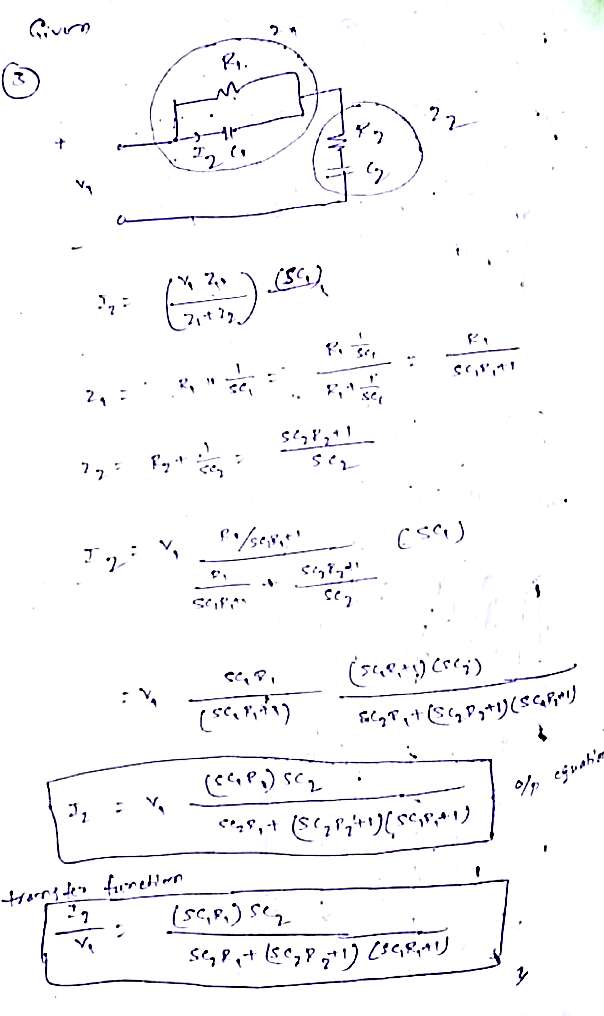 Given
3
Z1
R1
I2 C1
+
V1
-
R2
C2
Z2
I2 = (V1 Z1 / (Z1 + Z2)) (SC1)
Z1 = R1 || 1/SC1 = (R1 1/SC1) / (R1 + 1/SC1) = R1 / (SC1R1+1)
Z2 = R2 + 1/SC2 = (SC2R2+1) / SC2
I2 = V1 (R1/SC1R1+1) / (R1/(SC1R1+1) + (SC2R2+1)/SC2) (SC1)
= V1 SC1R1 / (SC1R1+1) (SC1R1+1)(SC2) / (SC2R1 + (SC2R2+1)(SC1R1+1))
I2 = V1 (SC1R1) SC2 / (SC2R1 + (SC2R2+1)(SC1R1+1)) o/p equation
transfer function
I2 / V1 = (SC1R1) SC2 / (SC2R1 + (SC2R2+1)(SC1R1+1))